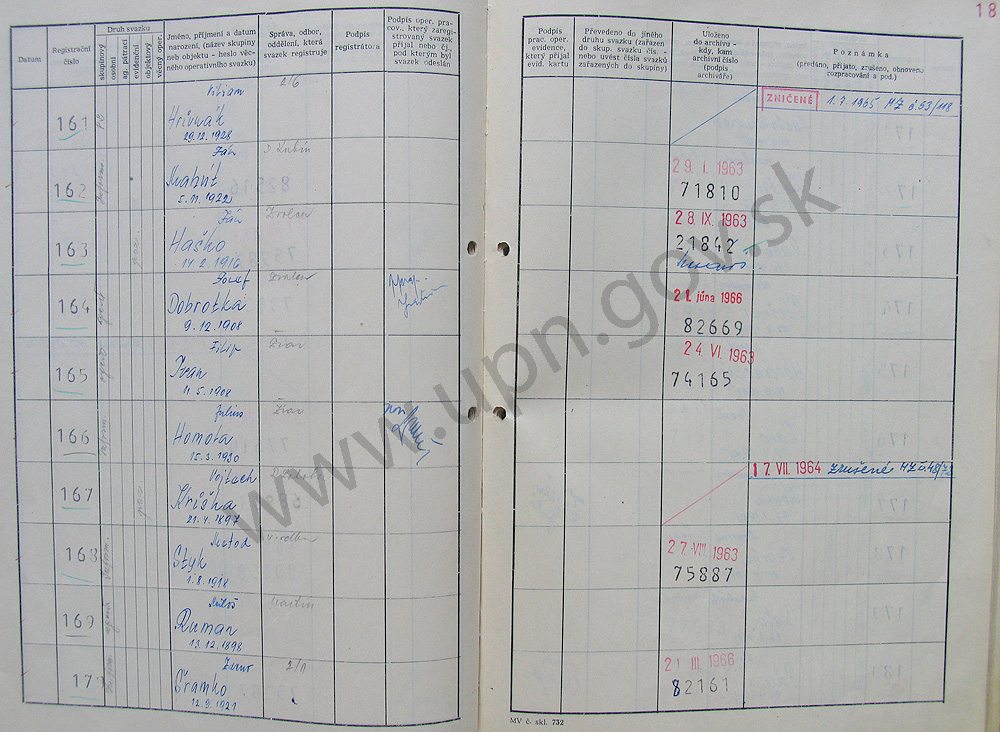 18
Datum
Registrační číslo
Druh svazku
skupinový
osobní
ag. pátrací
evidenční
objektový
věcný oper.
Jméno, příjmení a datum
narození, (název skupiny
neb objektu - heslo věc-
ného operativního svazku)
Správa, odbor,
oddělení, která
svazek registruje
Podpis
registrátora
Podpis oper. pra-
cov., který zaregi-
strovaný svazek
přijal nebo čj.,
pod kterým byl
svazek odeslán
Podpis
prac. oper.
evidence,
který přijal
evid. kartu
Převedeno do jiného
druhu svazku (zařazen
do skup. svazku čís. -
nebo uvést čísla svazků
zařazených do skupiny)
Uloženo
do archivu -
kdy, kam
archivní číslo
(podpis
archiváře)
Poznámka
(předáno, přijato, zrušeno, obnoveno
rozpracování a pod.)
161
Viliam
Hrivnák
29.12.1928
2/6
ZNIČENÉ 1.7.1965 MZ č 53/118
162
Ján
5.11.1922
D Kubín
29. I. 1963
71810
163
Ján
Haško
14.2.1916
Zvolen
28. IX. 1963
21842
164
Jozef
Dobrotka
9.12.1908
Zvolen
21. júna 1966
82669
165
Filip
Ivan
11.5.1908
Žiar
24. VI. 1963
74165
166
Július
Homola
15.3.1930
Žiar
167
Vojtech
Kriška
21.4.1897
17. VII. 1964 Zrušené MZ č 48/72
168
Metod
Štyk
1.8.1918
27. VIII. 1963
75887
169
Miloš
Ruman
13.12.1898
Martin
17
Šramko
12.9.1921
2/1
21. III. 1966
82161
MV č. skl. 732
www.upn.gov.sk